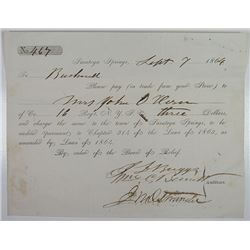 No 467
Saratoga Springs, Sept 7 1864
To Bushnell
Please pay (in trade from your Store) to
Mrs John O'Hern
of Co. 16 Reg't N. Y. S. three Dollars,
and charge the same to the town of Saratoga Springs, to be
audited pursuant to Chapter 514 of the Laws of 1863, as
amended by Laws of 1864.
By order of the Board of Relief.
Auditors.